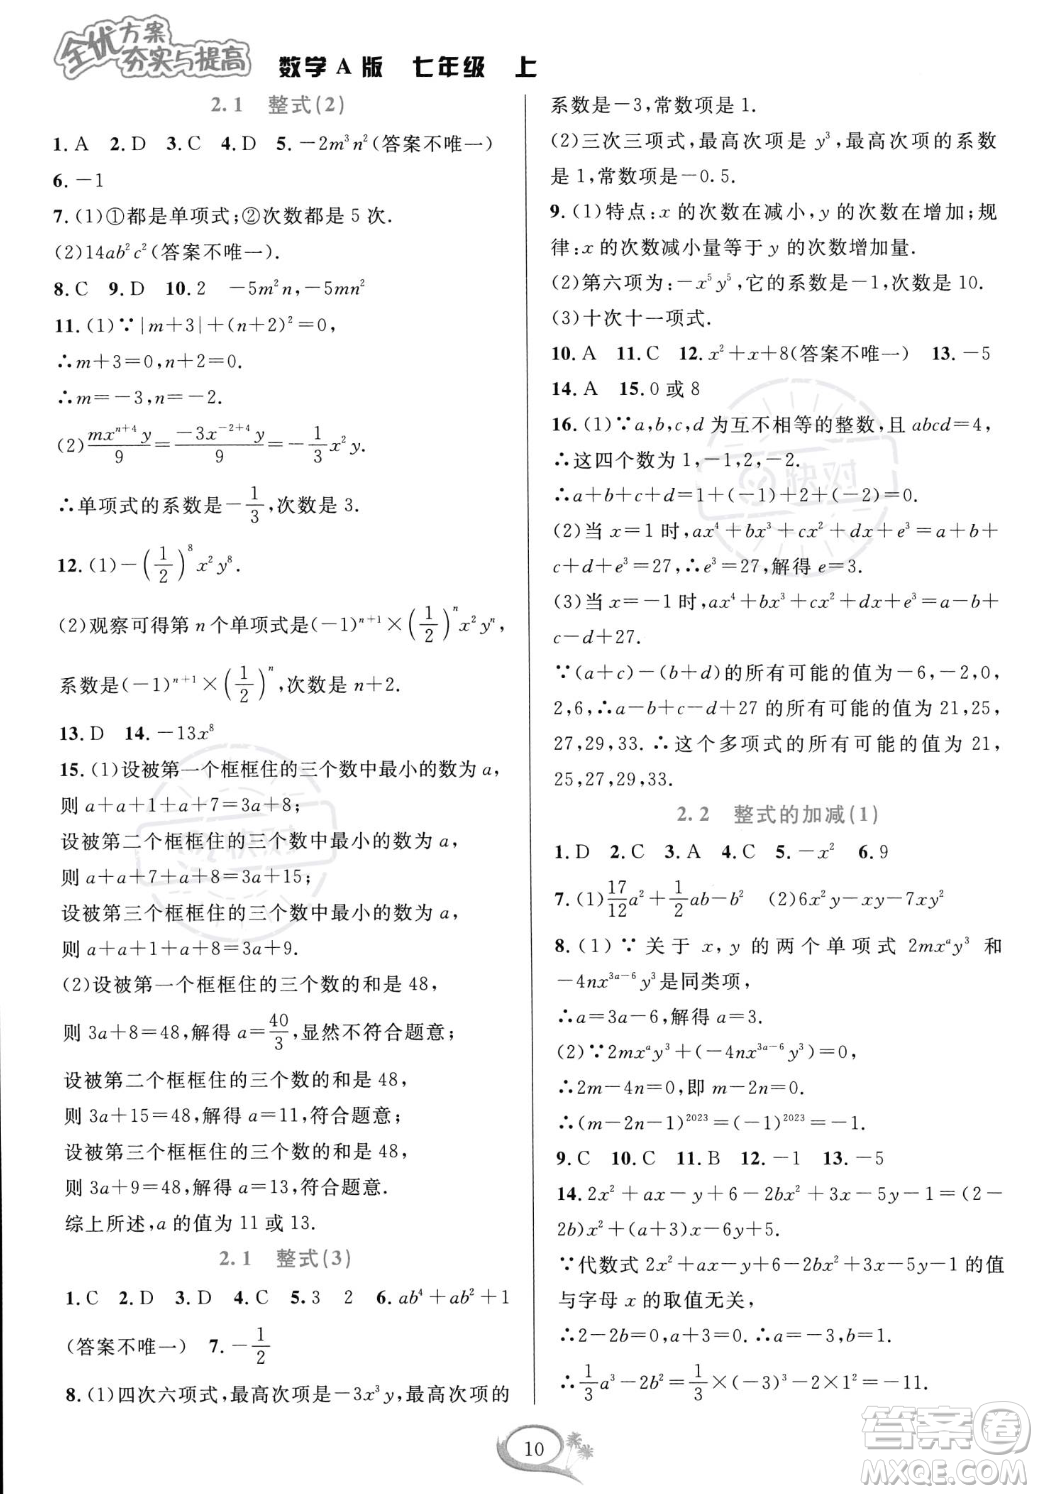 全优方案
夯实与提高
数学A版 七年级 上
2.1 整式(2)
1. A 2. D 3. C 4. D 5. －2m³n²(答案不唯一)
6. －1
7. (1)①都是单项式;②次数都是 5 次.
(2)14ab²c²(答案不唯一).
8. C 9. D 10. 2 －5m²n,－5mn²
11. (1)∵|m＋3|＋(n＋2)²＝0,
∴m＋3＝0,n＋2＝0,
∴m＝－3,n＝－2.
(2)mxⁿ⁺⁴y/9＝－3x⁻²⁺⁴y/9＝－1/3x²y.
∴单项式的系数是－1/3,次数是 3.
12. (1)－(1/2)⁸x²y⁸.
(2)观察可得第 n 个单项式是(－1)ⁿ⁺¹×(1/2)ⁿx²yⁿ,
系数是(－1)ⁿ⁺¹×(1/2)ⁿ,次数是 n＋2.
13. D 14. －13x⁸
15. (1)设被第一个框框住的三个数中最小的数为 a,
则 a＋a＋1＋a＋7＝3a＋8;
设被第二个框框住的三个数中最小的数为 a,
则 a＋a＋7＋a＋8＝3a＋15;
设被第三个框框住的三个数中最小的数为 a,
则 a＋a＋1＋a＋8＝3a＋9.
(2)设被第一个框框住的三个数的和是 48,
则 3a＋8＝48,解得 a＝40/3,显然不符合题意;
设被第二个框框住的三个数的和是 48,
则 3a＋15＝48,解得 a＝11,符合题意;
设被第三个框框住的三个数的和是 48,
则 3a＋9＝48,解得 a＝13,符合题意.
综上所述,a 的值为 11 或 13.
2.1 整式(3)
1. C 2. D 3. D 4. C 5. 3 2 6. ab⁴＋ab²＋1
(答案不唯一) 7. －1/2
8. (1)四次六项式,最高次项是－3x³y,最高次项的
系数是－3,常数项是 1.
(2)三次三项式,最高次项是 y³,最高次项的系数
是 1,常数项是－0.5.
9. (1)特点:x 的次数在减小,y 的次数在增加;规
律:x 的次数减小量等于 y 的次数增加量.
(2)第六项为:－x⁵y⁵,它的系数是－1,次数是 10.
(3)十次十一项式.
10. A 11. C 12. x²＋x＋8(答案不唯一) 13. －5
14. A 15. 0 或 8
16. (1)∵a,b,c,d 为互不相等的整数,且 abcd＝4,
∴这四个数为 1,－1,2,－2.
∴a＋b＋c＋d＝1＋(－1)＋2＋(－2)＝0.
(2)当 x＝1 时,ax⁴＋bx³＋cx²＋dx＋e³＝a＋b＋
c＋d＋e³＝27,∴e³＝27,解得 e＝3.
(3)当 x＝－1 时,ax⁴＋bx³＋cx²＋dx＋e³＝a－b＋
c－d＋27.
∵(a＋c)－(b＋d)的所有可能的值为－6,－2,0,
2,6,∴a－b＋c－d＋27 的所有可能的值为 21,25,
27,29,33.∴这个多项式的所有可能的值为 21,
25,27,29,33.
2.2 整式的加减(1)
1. D 2. C 3. A 4. C 5. －x² 6. 9
7. (1)17/12a²＋1/2ab－b² (2)6x²y－xy－7xy²
8. (1)∵关于 x,y 的两个单项式 2mxᵃy³ 和
－4nx³ᵃ⁻⁶y³是同类项,
∴a＝3a－6,解得 a＝3.
(2)∵2mxᵃy³＋(－4nx³ᵃ⁻⁶y³)＝0,
∴2m－4n＝0,即 m－2n＝0.
∴(m－2n－1)²⁰²³＝(－1)²⁰²³＝－1.
9. C 10. C 11. B 12. －1 13. －5
14. 2x²＋ax－y＋6－2bx²＋3x－5y－1＝(2－
2b)x²＋(a＋3)x－6y＋5.
∵代数式 2x²＋ax－y＋6－2bx²＋3x－5y－1 的值
与字母 x 的取值无关,
∴2－2b＝0,a＋3＝0,∴b＝1,a＝－3.
∴1/3a³－2b²＝1/3×(－3)³－2×1²＝－11.
10
快对
答案卷
MXQE.COM